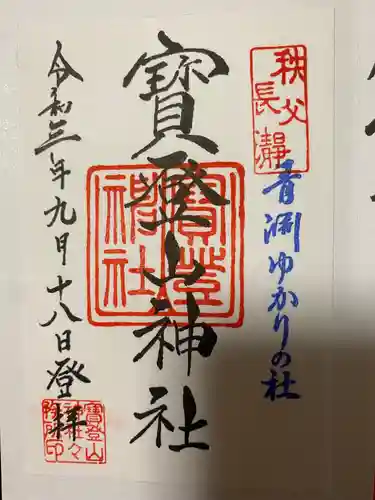 秩父
長瀞
青淵ゆかりの社
寳登山神社
寳登山神社
令和三年九月十八日登拝
寳登山
神社々
務所印